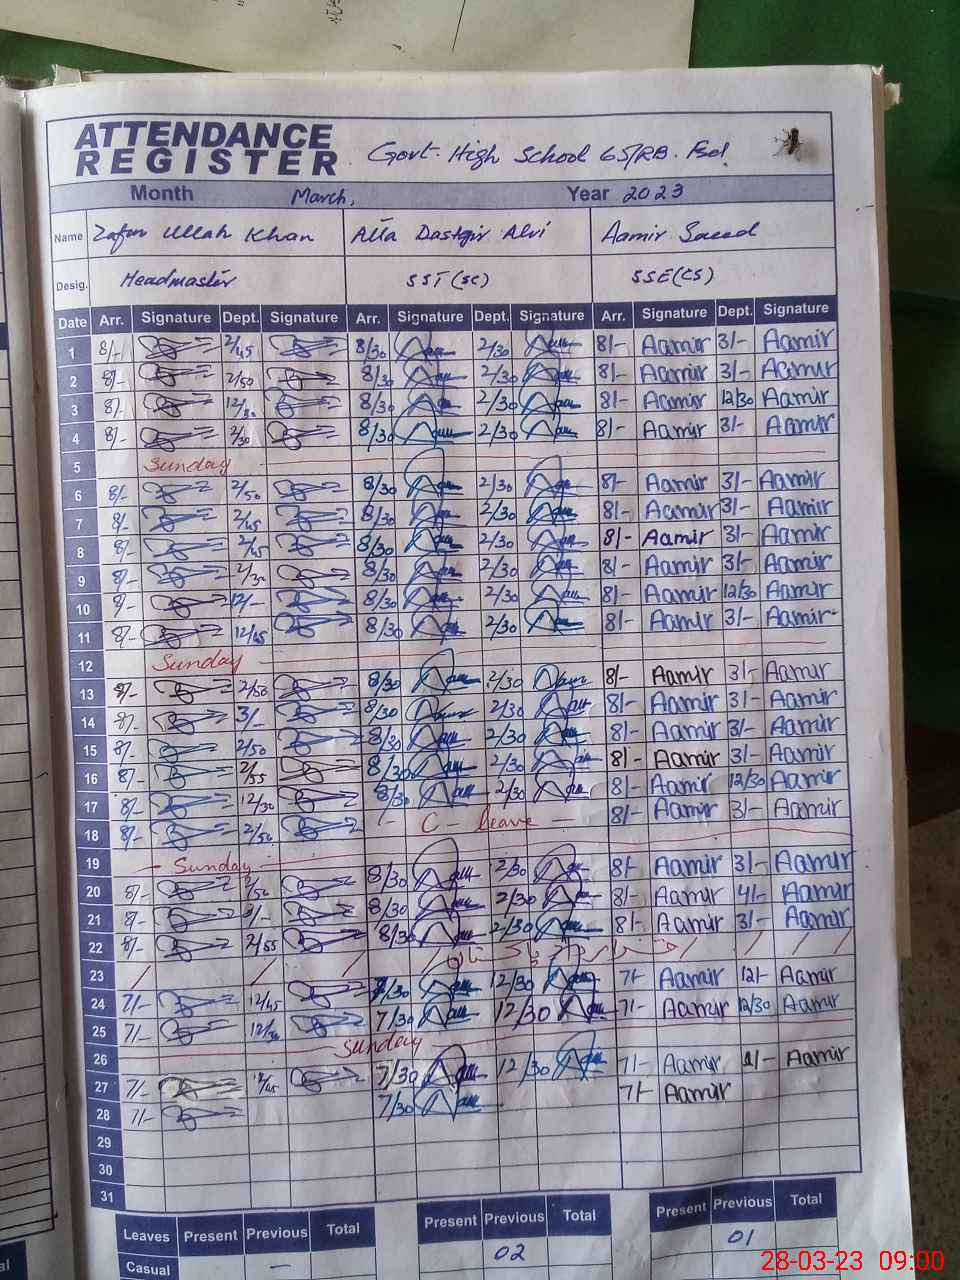 ATTENDANCE
REGISTER Govt. High School 65/RB. Fsd.
Month March, Year 2023
Name Zafar Ullah Khan Atta Dastgir Alvi Aamir Saeed
Desig. Headmaster SST (SC) SSE (CS)
Date Arr. Signature Dept. Signature Arr. Signature Dept. Signature Arr. Signature Dept. Signature
1 8/- 2/45 8/30 2/30 8/- Aamir 3/- Aamir
2 8/- 2/50 8/30 2/30 8/- Aamir 3/- Aamir
3 8/- 8/30 2/30 8/- Aamir 12/30 Aamir
4 8/- 2/30 8/30 2/30 8/- Aamir 3/- Aamir
5 Sunday
6 8/- 2/50 8/30 2/30 8/- Aamir 3/- Aamir
7 8/- 2/45 8/30 2/30 8/- Aamir 3/- Aamir
8 8/- 2/45 8/30 2/30 8/- Aamir 3/- Aamir
9 8/- 2/30 8/30 2/30 8/- Aamir 3/- Aamir
10 8/- 12/- 8/30 2/30 8/- Aamir 12/30 Aamir
11 8/- 12/45 8/30 2/30 8/- Aamir 3/- Aamir
12 Sunday
13 8/- 2/50 8/30 2/30 8/- Aamir 3/- Aamir
14 8/- 3/- 8/30 2/30 8/- Aamir 3/- Aamir
15 8/- 2/50 8/30 2/30 8/- Aamir 3/- Aamir
16 8/- 2/55 8/30 2/30 8/- Aamir 3/- Aamir
17 8/- 12/30 8/30 2/30 8/- Aamir 12/30 Aamir
18 8/- 2/50 - C - leave - 8/- Aamir 3/- Aamir
19 - Sunday
20 8/- 2/50 8/30 2/30 8/- Aamir 3/- Aamir
21 8/- 8/30 2/30 8/- Aamir 4/- Aamir
22 8/- 2/55 8/30 2/30 8/- Aamir 3/- Aamir
23
24 7/- 12/45 7/30 12/30 7/- Aamir 12/- Aamir
25 7/- 7/30 12/30 7/- Aamir 12/30 Aamir
26 Sunday
27 7/- 7/30 12/30 7/- Aamir 1/- Aamir
28 7/- 7/30 7/- Aamir
29
30
31
Leaves Present Previous Total Present Previous Total Present Previous Total
Casual - 02 01
28-03-23 09:00